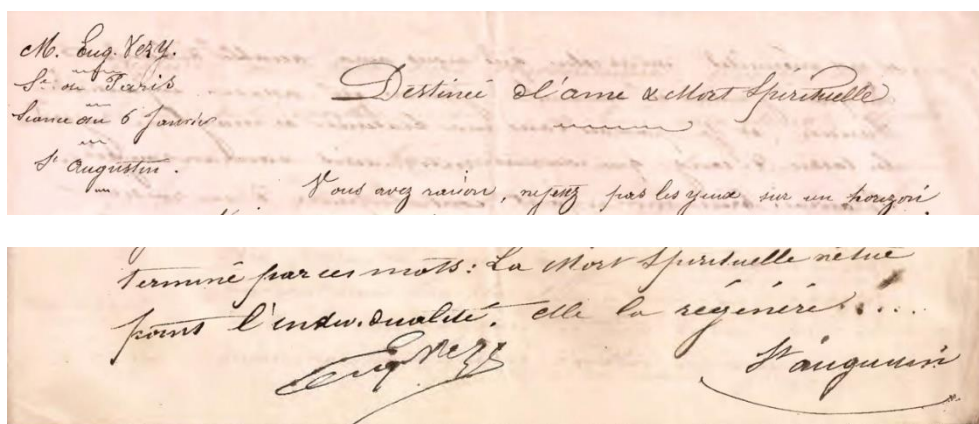 M. Eug. Vezy.
Sté de Paris
Séance du 6 Janvier
St Augustin.
Destiné d l'ame & Mort Spirituelle
Vous avez raison, rejetez pas les yeux sur un horizon
terminé par ces mots: La Mort Spirituelle ne tue
point l'individualité. elle la régénére....
Eug Vezy
St augustin